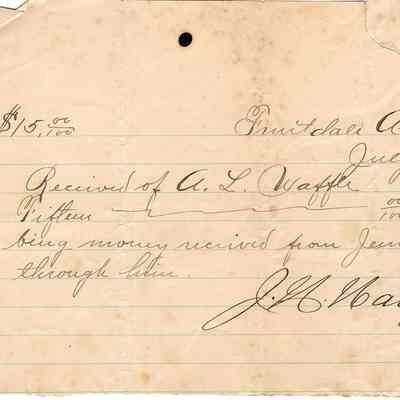 $15.00/100 Fruitdale A
July
Received of A. L. Waffle
Fifteen 00/100
being money received from Jenn
through him.
J. H. Hay